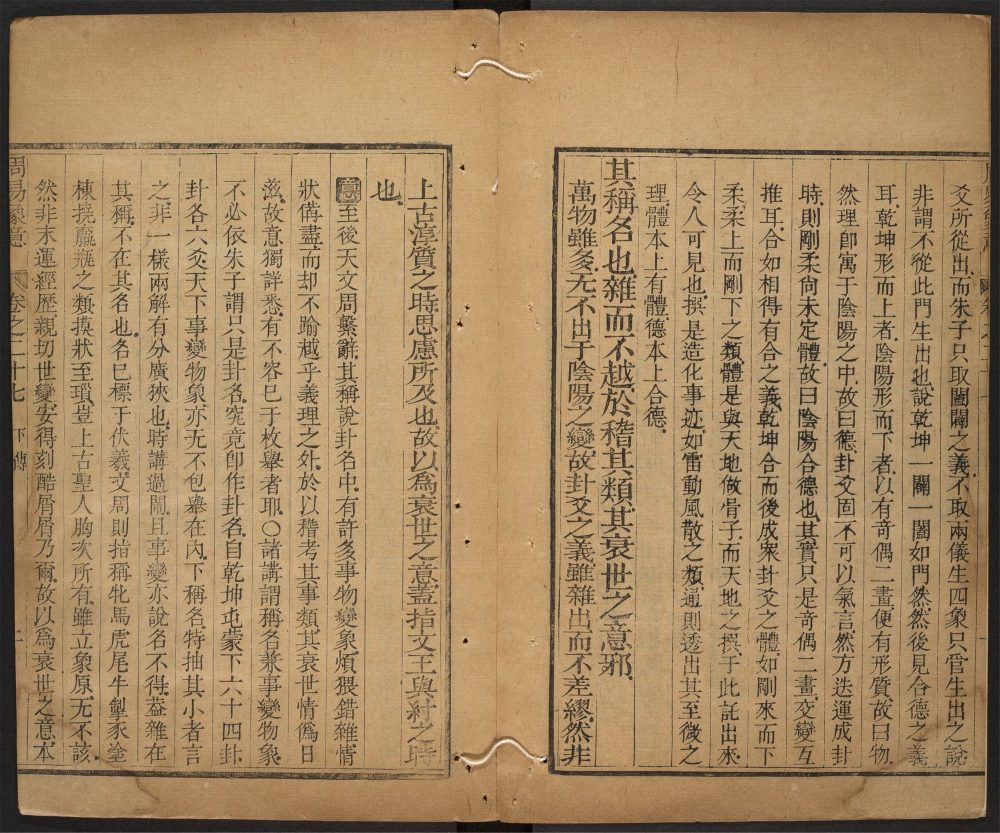 爻所從出.而朱子只取闔闢之義.不取兩儀生四象只管生出之說
非謂不從此門生出也.說乾坤一闢一闔如門然.然後見合德之義
耳.乾坤形而上者.陰陽形而下者.以有奇偶二畫.便有形質.故曰物.
然理卽寓于陰陽之中.故曰德.卦爻固不可以氣言.然方迭運成卦
時.則剛柔尙未定體.故曰陰陽合德也.其實只是奇偶二畫.交變互
推耳.合如相得有合之義.乾坤合而後成衆卦爻之體.如剛來而下
柔.柔上而剛下之類.體是與天地做骨子.而天地之撰.于此託出來.
令人可見也.撰是造化事迹.如雷動風散之類.通則透出其至微之
理.體本上有體.德本上合德.
其稱名也雜而不越.於稽其類.其衰世之意邪.
萬物雖多.无不出于陰陽之變.故卦爻之義.雖雜出而不差繆.然非
上古淳質之時思慮所及也.故以爲衰世之意.蓋指文王與紂之時
也.
意至後天文周繫辭.其稱說卦名中.有許多事物變象.煩猥錯雜.情
狀備盡.而却不踰越乎義理之外.於以稽考其事類.其衰世情僞日
滋.故意獨詳悉.有不容已于枚舉者耶.○諸講謂稱名兼事變物象.
不必依朱子謂只是卦名.究竟卽作卦名.自乾坤屯蒙下六十四卦.
卦各六爻.天下事變物象.亦无不包舉在內.下稱名.特抽其小者言
之.非一樣兩解.有分廣狹也.時講過鬧.且事變亦說名不得.蓋雜在
其稱.不在其名也.名已標于伏羲.文周則指稱牝馬虎尾牛掣豕塗
棟撓羸瓶之類.摸狀至瑣.豈上古聖人胸次所有.雖立象原无不該.
然非末運經歷親切世變.安得刻酷屑屑乃爾.故以爲衰世之意.本
周易象意 卷之二十七 下傳 二